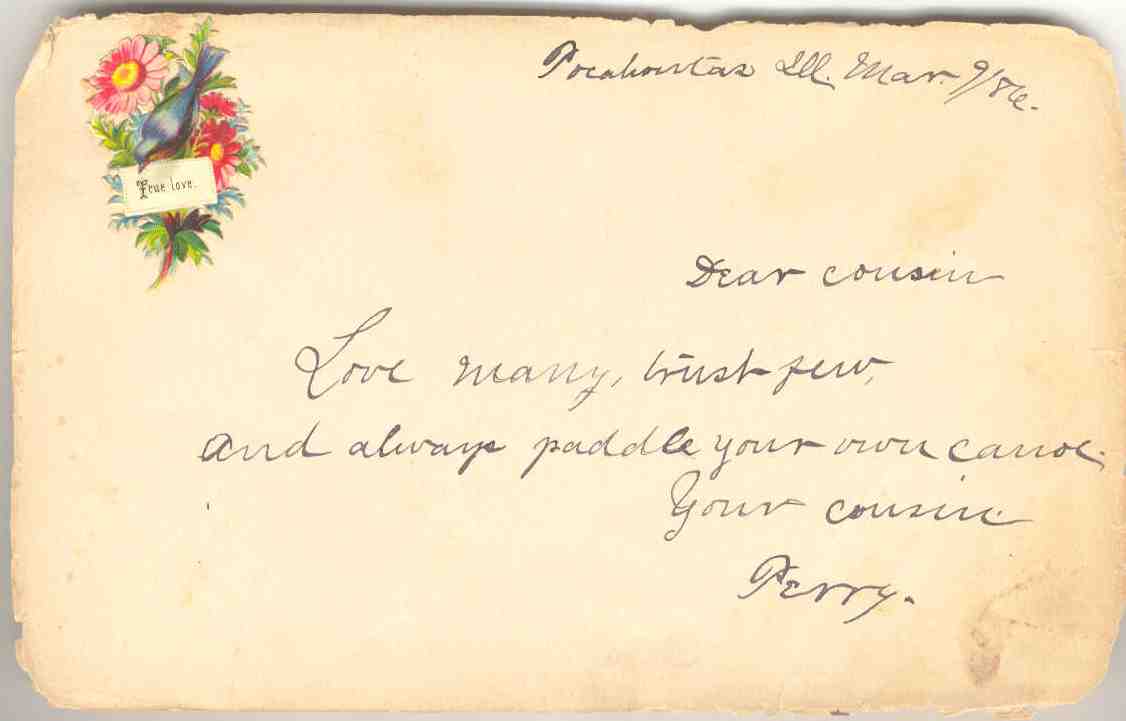 Pocahontas Ill. Mar. 9/86.
True love.
Dear cousin
Love many, trust few,
and always paddle your own canoe.
Your cousin
Perry.